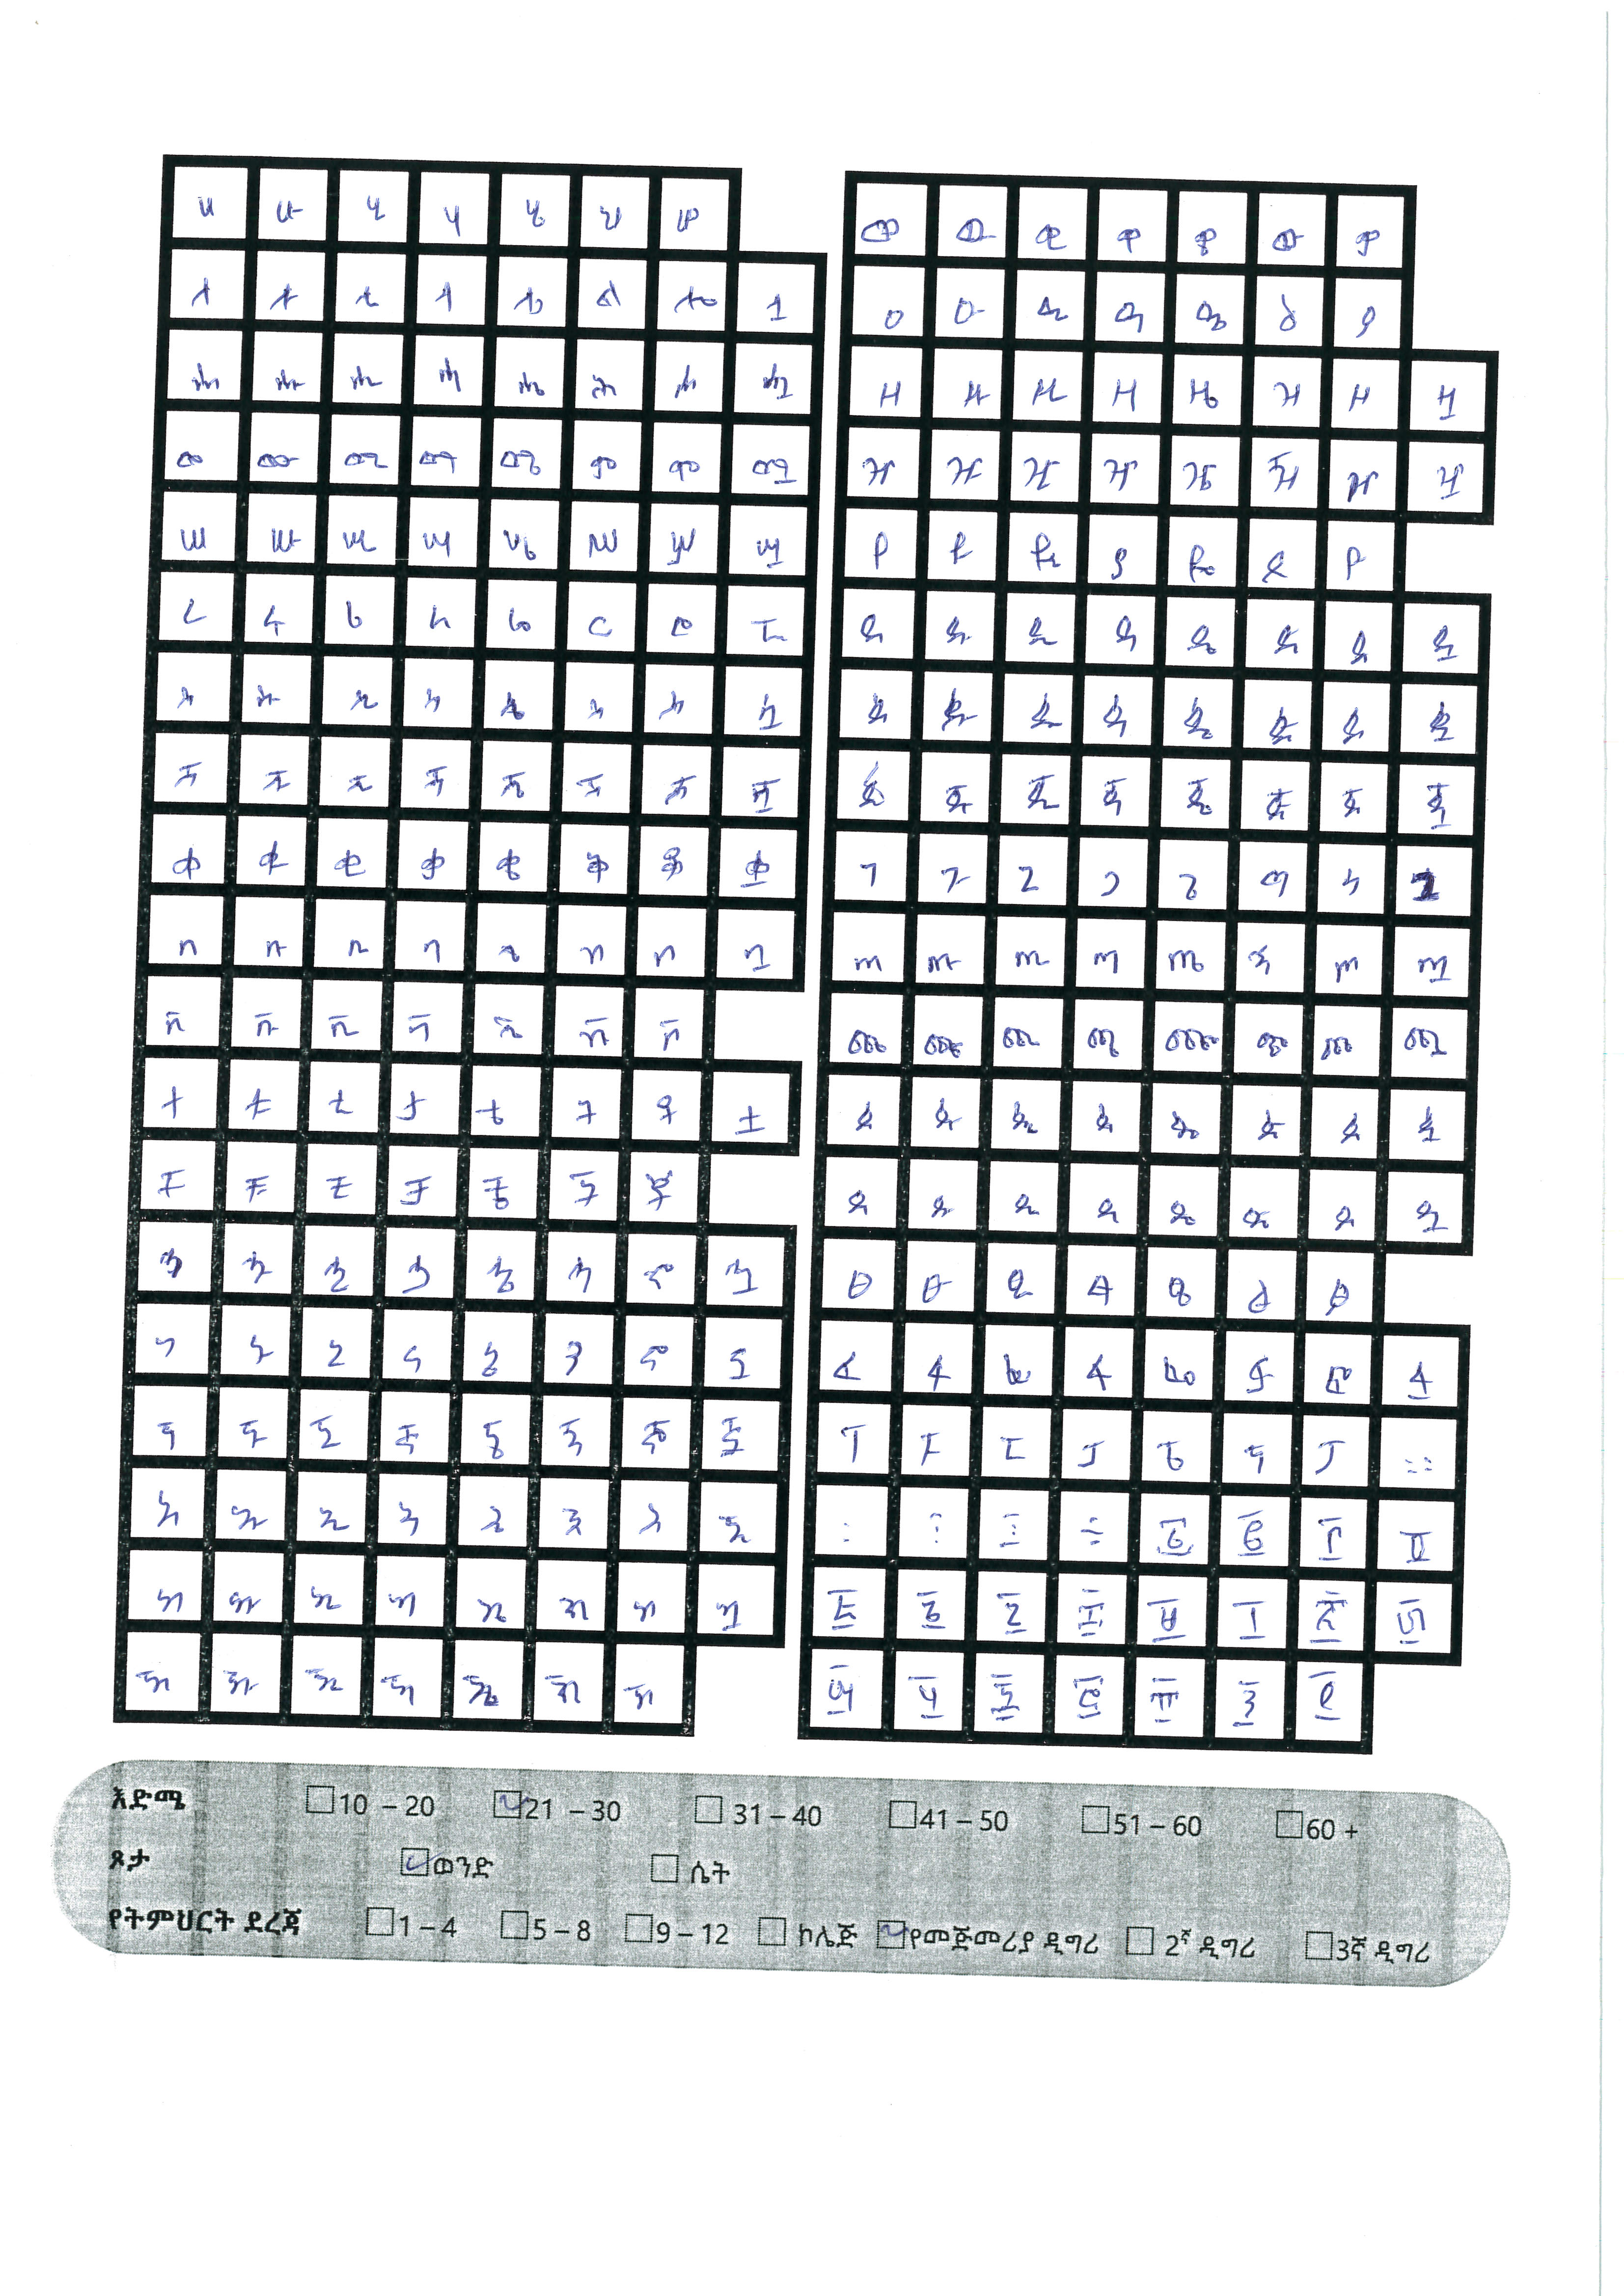 ሀ ሁ ሂ ሃ ሄ ህ ሆ
ለ ሉ ሊ ላ ሌ ል ሎ ሏ
ሐ ሑ ሒ ሓ ሔ ሕ ሖ ሗ
መ ሙ ሚ ማ ሜ ም ሞ ሟ
ሠ ሡ ሢ ሣ ሤ ሥ ሦ ሧ
ረ ሩ ሪ ራ ሬ ር ሮ ሯ
ሰ ሱ ሲ ሳ ሴ ስ ሶ ሷ
ሸ ሹ ሺ ሻ ሼ ሽ ሾ ሿ
ቀ ቁ ቂ ቃ ቄ ቅ ቆ ቋ
በ ቡ ቢ ባ ቤ ብ ቦ ቧ
ቨ ቩ ቪ ቫ ቬ ቭ ቮ
ተ ቱ ቲ ታ ቴ ት ቶ ቷ
ቸ ቹ ቺ ቻ ቼ ች ቾ
ኀ ኁ ኂ ኃ ኄ ኅ ኆ ኋ
ነ ኑ ኒ ና ኔ ን ኖ ኗ
ኘ ኙ ኚ ኛ ኜ ኝ ኞ ኟ
አ ኡ ኢ ኣ ኤ እ ኦ ኧ
ከ ኩ ኪ ካ ኬ ክ ኮ ኳ
ኸ ኹ ኺ ኻ ኼ ኽ ኾ
ወ ዉ ዊ ዋ ዌ ው ዎ
ዐ ዑ ዒ ዓ ዔ ዕ ዖ
ዘ ዙ ዚ ዛ ዜ ዝ ዞ ዟ
ዠ ዡ ዢ ዣ ዤ ዥ ዦ ዧ
የ ዩ ዪ ያ ዬ ይ ዮ
ደ ዱ ዲ ዳ ዴ ድ ዶ ዷ
ዸ ዹ ዺ ዻ ዼ ዽ ዾ ዿ
ጀ ጁ ጂ ጃ ጄ ጅ ጆ ጇ
ገ ጉ ጊ ጋ ጌ ግ ጎ ጓ
ጠ ጡ ጢ ጣ ጤ ጥ ጦ ጧ
ጨ ጩ ጪ ጫ ጬ ጭ ጮ ጯ
ጰ ጱ ጲ ጳ ጴ ጵ ጶ ጷ
ጸ ጹ ጺ ጻ ጼ ጽ ጾ ጿ
ፀ ፁ ፂ ፃ ፄ ፅ ፆ
ፈ ፉ ፊ ፋ ፌ ፍ ፎ ፏ
ፐ ፑ ፒ ፓ ፔ ፕ ፖ ።
እድሜ 10 – 20 21 – 30 31 – 40 41 – 50 51 – 60 60 +
ጾታ ወንድ ሴት
የትምህርት ደረጃ 1 – 4 5 – 8 9 – 12 ኮሌጅ የመጀመሪያ ዲግሪ 2ኛ ዲግሪ 3ኛ ዲግሪ